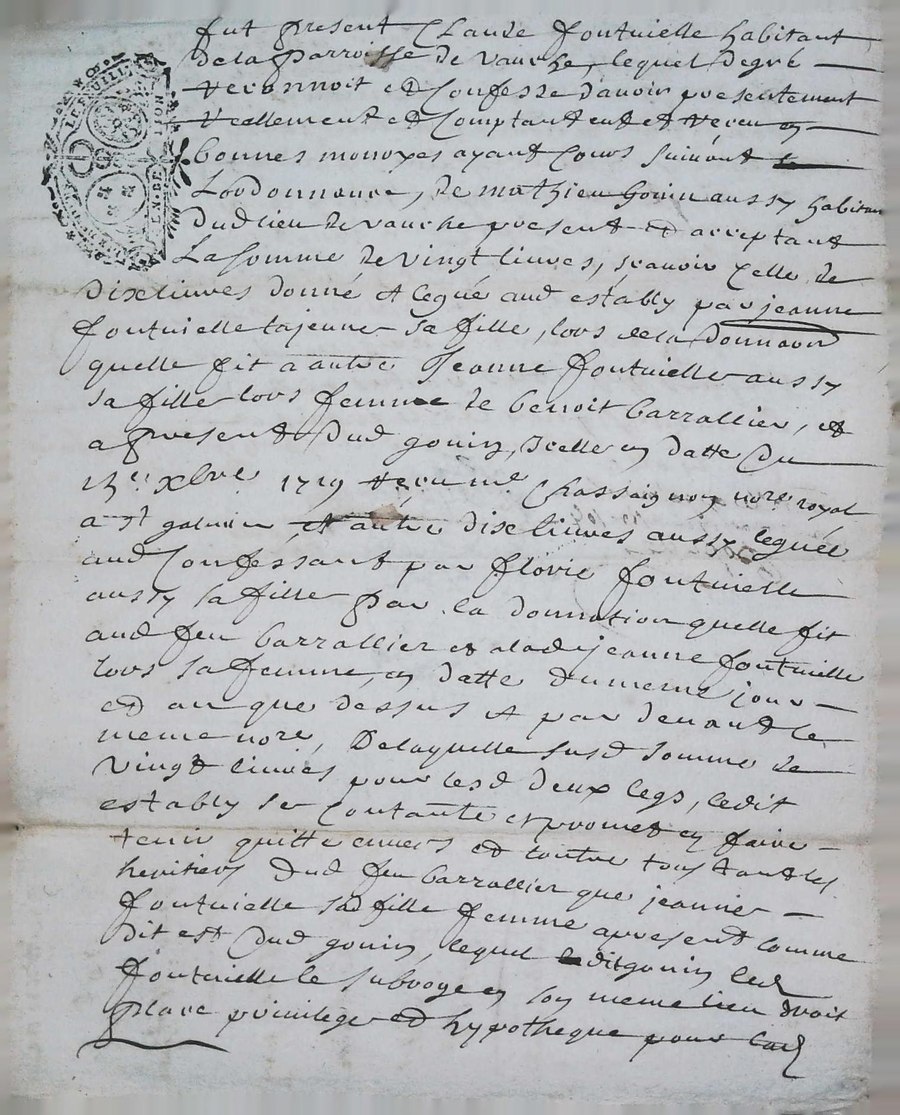 fut present Claude fontvielle habitant
de la parroisse de vauche, lequel de gré
reconnoit et Confesse d'avoir presentement
reellement et Comptant eut et receu en
bonnes monoyes ayant Cours suivant
Lordonnance, de mathieu gouin aussy habitan
dud lieu de vauche present et acceptant
La somme de vingt livres, scavoir Celle de
dix livres donné et legué aud estably par jeanne
fontvielle la jeune sa fille, lors de la donnaon
quelle fit a autre Jeanne fontvielle aussy
sa fille lors femme de benoit barrallier, et
apresent dud gouin, Icelle en datte du
xbre 1719 receu me Chassaignon nore royal
a st galmier et autre dix livres aussy leguée
aud Confessant par florie fontvielle
aussy sa fille par la donnation quelle fit
aud feu barrallier et alad jeanne fontvielle
lors sa femme, en datte du meme jour
et an que dessus et par devant le
meme nore, De laquelle susd somme de
vingt livres pour lesd deux legs, ledit
estably se Contante et promet en faire
tenir quitte envers et contre tous tant les
heritiers dud feu barrallier que jeanne
fontvielle sad fille femme apresent comme
dit est dud gouin, lequel ledit gouin led
fontvielle le subroge en son meme lieu droit
place privilege et hypotheque pour
LA FEUILLE
GEN DE LION